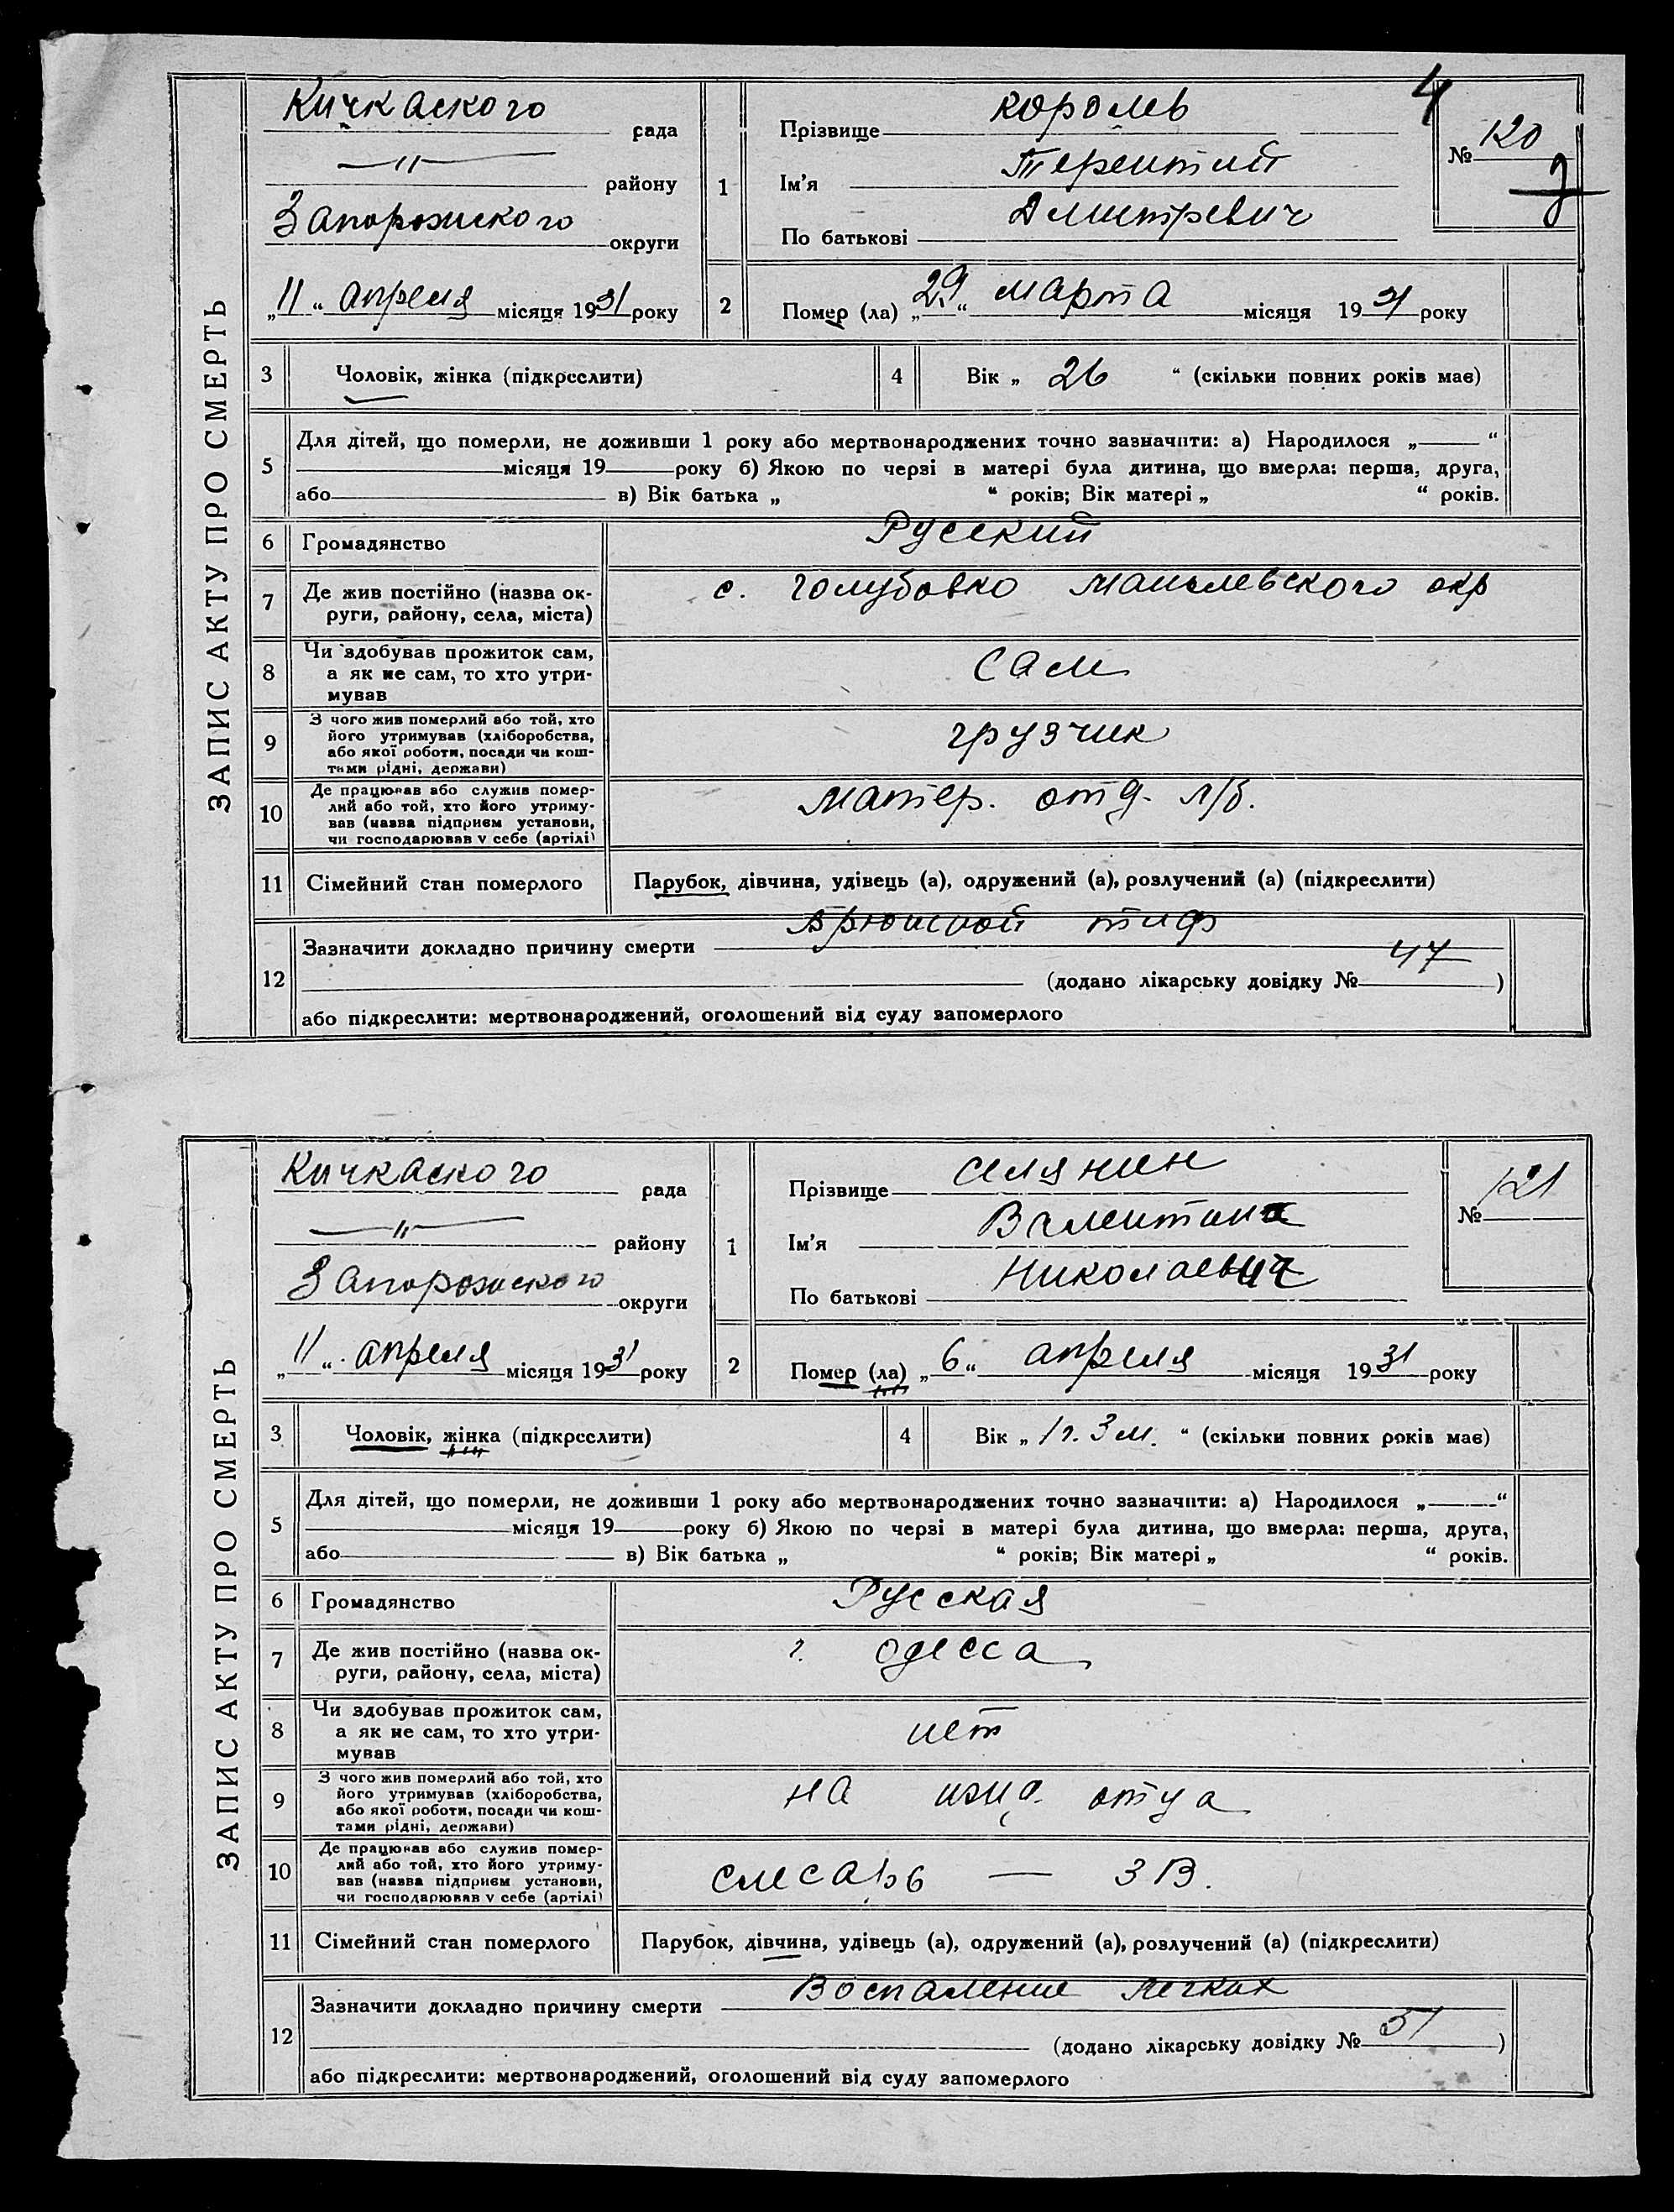 ЗАПИС АКТУ ПРО СМЕРТЬ
Кичкаского рада
—〃— району
Запорожского округи
„11“ апреля місяця 1931 року
1
Прізвище Королев
Ім'я Терентий
По батькові Дмитревич
4
№ 120
2
Помер (ла) „29“ марта місяця 1931 року
3 Чоловік, жінка (підкреслити)
4 Вік „26“ (скільки повних років має)
5 Для дітей, що померли, не доживши 1 року або мертвонароджених точно зазначити: а) Народилося „ “
місяця 19 року б) Якою по черзі в матері була дитина, що вмерла: перша, друга,
або в) Вік батька „ “ років; Вік матері „ “ років.
6 Громадянство Русский
7 Де жив постійно (назва ок-
руги, району, села, міста)
с. Голубовко окр
8 Чи здобував прожиток сам,
а як не сам, то хто утри-
мував
сам
9 З чого жив померлий або той, хто
його утримував (хліборобства,
або якої роботи, посади чи кош-
тами рідні, держави)
грузчик
10 Де працював або служив помер-
лий або той, хто його утриму-
вав (назва підприєм установи,
чи господарював у себе (артілі)
Матер. отд. л/б.
11 Сімейний стан померлого Парубок, дівчина, удівець (а), одружений (а), розлучений (а) (підкреслити)
12 Зазначити докладно причину смерти Брюшной тиф
(додано лікарську довідку № 47)
або підкреслити: мертвонароджений, оголошений від суду запомерлого
ЗАПИС АКТУ ПРО СМЕРТЬ
Кичкаского рада
—〃— району
Запорожского округи
„11“ апреля місяця 1931 року
1
Прізвище Селянин
Ім'я Валентина
По батькові Николаевич
№ 121
2
Помер (ла) „6“ апреля місяця 1931 року
3 Чоловік, жінка (підкреслити)
4 Вік „1 г. 3 м.“ (скільки повних років має)
5 Для дітей, що померли, не доживши 1 року або мертвонароджених точно зазначити: а) Народилося „ “
місяця 19 року б) Якою по черзі в матері була дитина, що вмерла: перша, друга,
або в) Вік батька „ “ років; Вік матері „ “ років.
6 Громадянство Русская
7 Де жив постійно (назва ок-
руги, району, села, міста)
г. Одесса
8 Чи здобував прожиток сам,
а як не сам, то хто утри-
мував
нет
9 З чого жив померлий або той, хто
його утримував (хліборобства,
або якої роботи, посади чи кош-
тами рідні, держави)
на ижд. отца
10 Де працював або служив помер-
лий або той, хто його утриму-
вав (назва підприєм установи,
чи господарював у себе (артілі)
слесарь — ЗВ.
11 Сімейний стан померлого Парубок, дівчина, удівець (а), одружений (а), розлучений (а) (підкреслити)
12 Зазначити докладно причину смерти Воспаление легких
(додано лікарську довідку № 51)
або підкреслити: мертвонароджений, оголошений від суду запомерлого